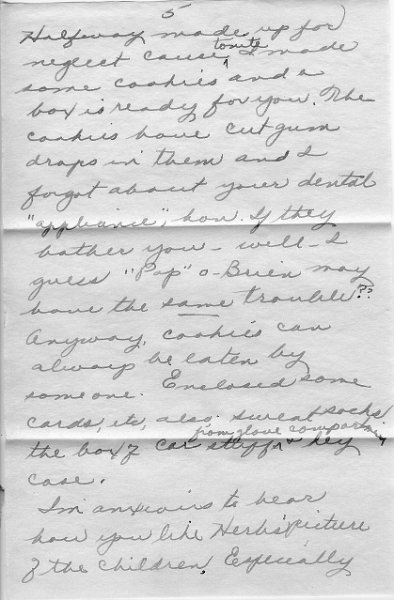 5
Halfway made up for
neglect cause, tonite I made
some cookies and a
box is ready for you. The
cookies have cut gum
drops in them and I
forgot about your dental
"appliance", hon. If they
bother you - well - I
guess "Pop" O-Brien may
have the same trouble??
Anyway, cookies can
always be eaten by
someone. Enclosed some
cards, etc, also sweat socks
the box of car stuff from glove compartment & key
case.
I'm anxious to hear
how you like Herb's picture
of the children. Especially